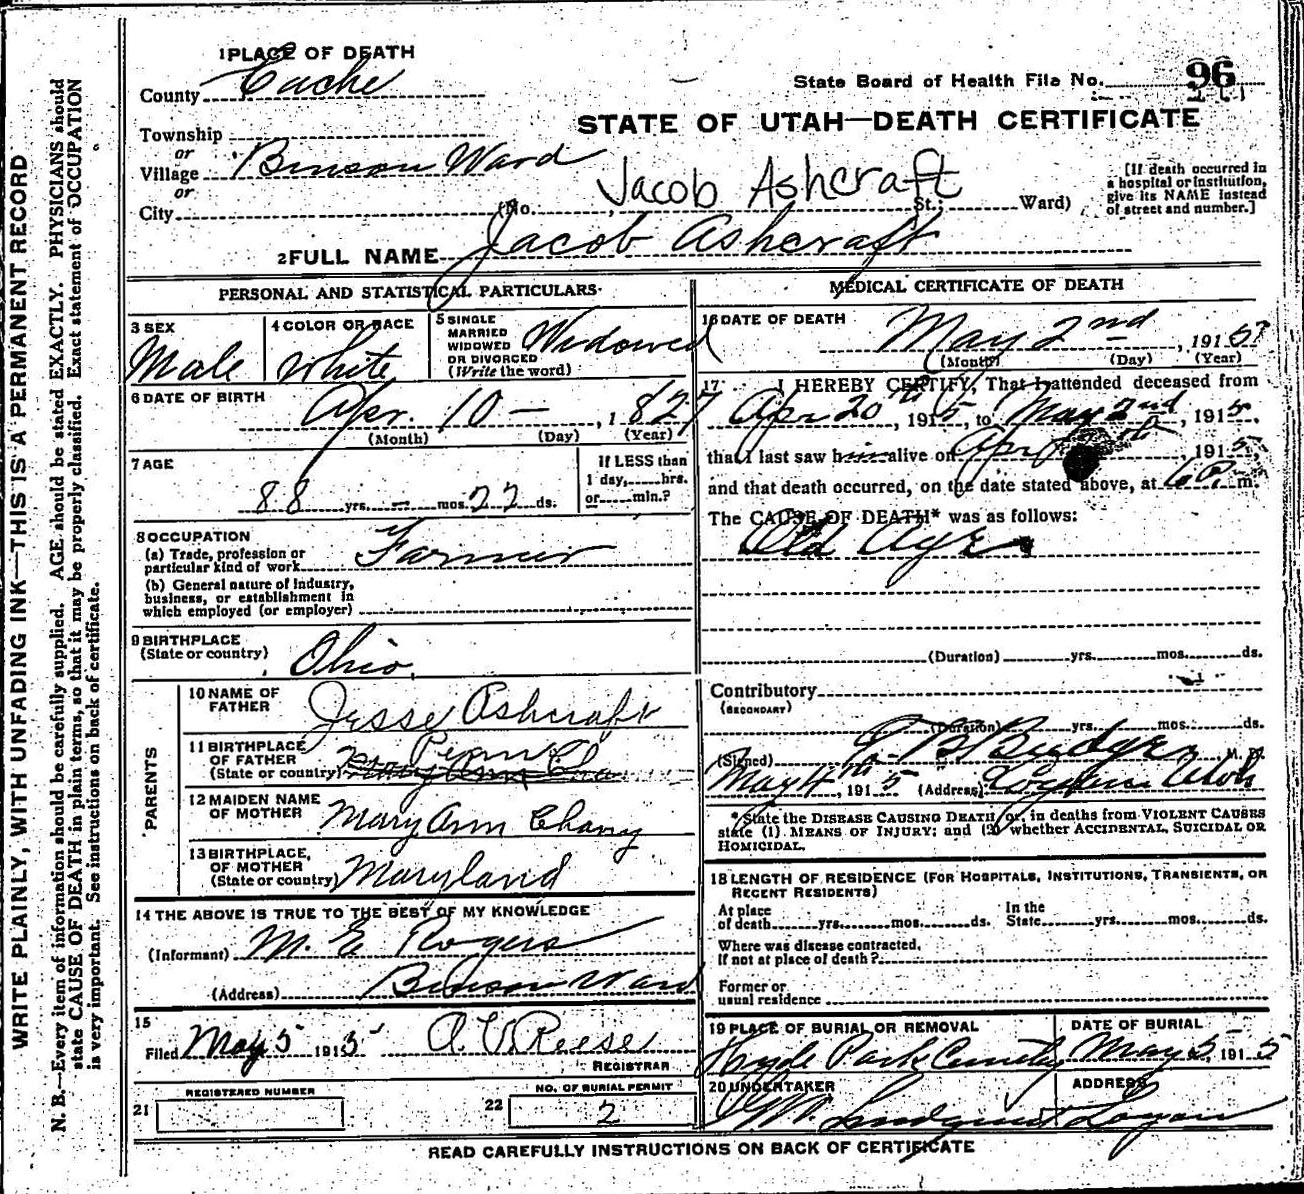 WRITE PLAINLY, WITH UNFADING INK—THIS IS A PERMANENT RECORD
N. B.—Every item of information should be carefully supplied. AGE should be stated EXACTLY. PHYSICIANS should
state CAUSE OF DEATH in plain terms, so that it may be properly classified. Exact statement of OCCUPATION
is very important. See instructions on back of certificate.
1 PLACE OF DEATH
County Cache
State Board of Health File No. 96
STATE OF UTAH—DEATH CERTIFICATE
Township
or
Village Binson Ward
or
City (No. St.; Ward)
Jacob Ashcraft
[If death occurred in
a hospital or institution,
give its NAME instead
of street and number.]
2 FULL NAME Jacob Ashcraft
PERSONAL AND STATISTICAL PARTICULARS
3 SEX
Male
4 COLOR OR RACE
White
5 SINGLE
MARRIED
WIDOWED
OR DIVORCED
(Write the word)
Widowed
6 DATE OF BIRTH
Apr. 10 — , 1827
(Month) (Day) (Year)
7 AGE
88 yrs. — mos. 22 ds.
If LESS than
1 day, hrs.
or min.?
8 OCCUPATION
(a) Trade, profession or
particular kind of work Farmer
(b) General nature of Industry,
business, or establishment in
which employed (or employer)
9 BIRTHPLACE
(State or country) Ohio
PARENTS
10 NAME OF
FATHER Jesse Ashcraft
11 BIRTHPLACE
OF FATHER
(State or country) Penn
12 MAIDEN NAME
OF MOTHER Mary Ann Chany
13 BIRTHPLACE,
OF MOTHER
(State or country) Maryland
14 THE ABOVE IS TRUE TO THE BEST OF MY KNOWLEDGE
(Informant) M. E. Rogers
(Address) Binson Ward
15
Filed May 5 1915 A. V. Reese
REGISTRAR
REGISTERED NUMBER
21
NO. OF BURIAL PERMIT
22 2
MEDICAL CERTIFICATE OF DEATH
16 DATE OF DEATH
May 2nd — , 1915
(Month) (Day) (Year)
17 I HEREBY CERTIFY, That I attended deceased from
Apr 20th, 1915, to May 2nd, 1915,
that I last saw him alive on Apr th, 1915,
and that death occurred, on the date stated above, at 6 P. m.
The CAUSE OF DEATH* was as follows:
Old Age
(Duration) yrs. mos. ds.
Contributory
(SECONDARY)
(Duration) yrs. mos. ds.
(Signed) Budge M. D.
May 4th, 1915 (Address) Logan Utah
* State the DISEASE CAUSING DEATH, or, in deaths from VIOLENT CAUSES
state (1) MEANS OF INJURY; and (2) whether ACCIDENTAL, SUICIDAL OR
HOMICIDAL.
18 LENGTH OF RESIDENCE (FOR HOSPITALS, INSTITUTIONS, TRANSIENTS, OR
RECENT RESIDENTS)
At place
of death yrs. mos. ds.
In the
State yrs. mos. ds.
Where was disease contracted,
If not at place of death?
Former or
usual residence
19 PLACE OF BURIAL OR REMOVAL
Hyde Park Cemetery
DATE OF BURIAL
May 5, 1915
20 UNDERTAKER
Lindquist
ADDRESS
Logan
READ CAREFULLY INSTRUCTIONS ON BACK OF CERTIFICATE